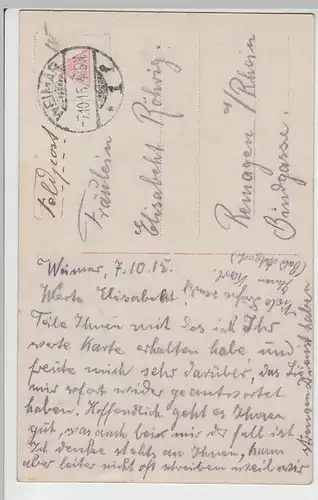 WEIMAR
-7.10.15.
Feldpost
Fräulein
Elisabeht Röhrig.
Remagen a/Rhein
Bindgasse.
Weimar, 7.10.15.
Werte Elisabeht!
Teile Ihnen mit das ich Ihr
werte Karte erhalten habe und
freute mich sehr darüber, das Sie
mir sofort wieder geantwortet
haben. Hoffendlich geht es Ihnen
gut, was auch bein mir der fall ist.
Ich denke stehts an Ihnen, kann
aber leiter nicht oft schreiben weil wir
strengen Dienst haben
Viele Grüße sendet
Ihnen Karl.